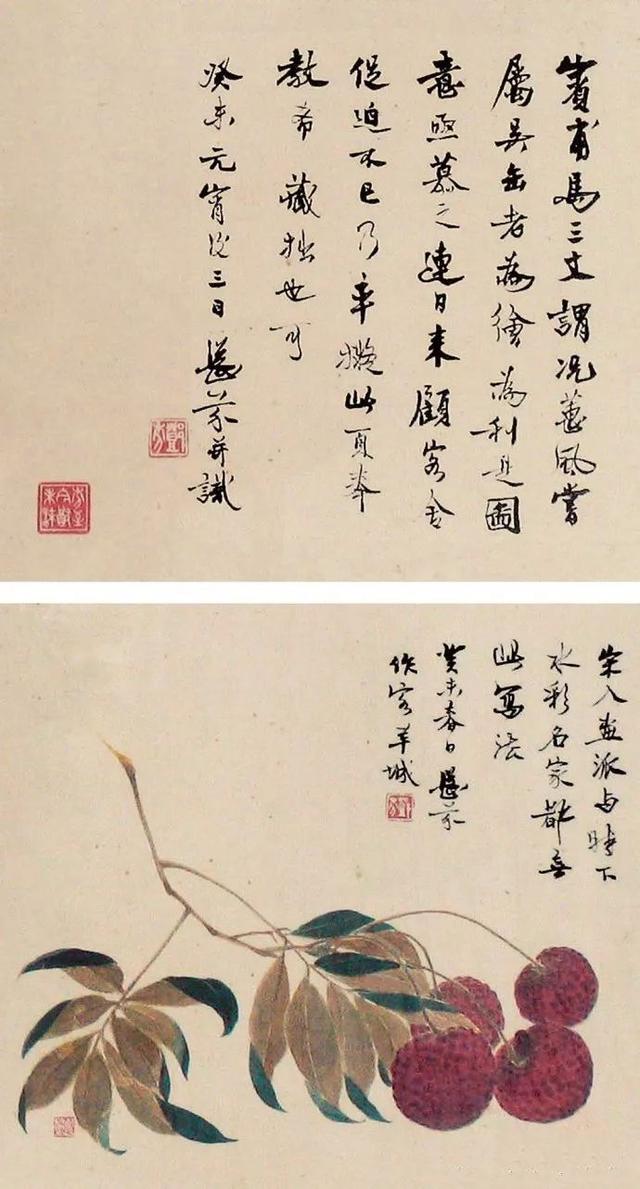 賓甫馬三丈謂況蕙風嘗
屬吳缶老繪為利是圖
意慕之連日來顧客舍
促迫不已乃率擬此頁奉
教希藏拙也可
癸未元宵後三日曇芬并識
宋人畫派与時下
水彩名家都喜
此寫法
癸未春日曇芬
作客羊城